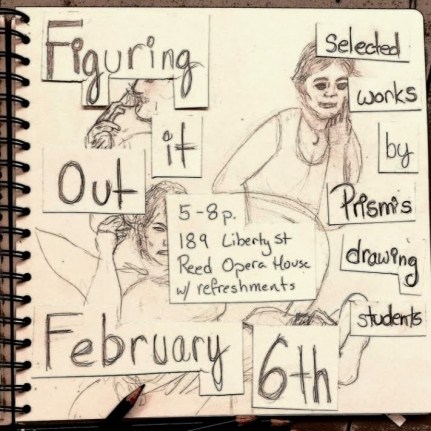 Figuring
it
Out
Selected
works
by
Prismis
drawing
students
5-8p.
189 Liberty St
Reed Opera House
w/ refreshments
February
6th